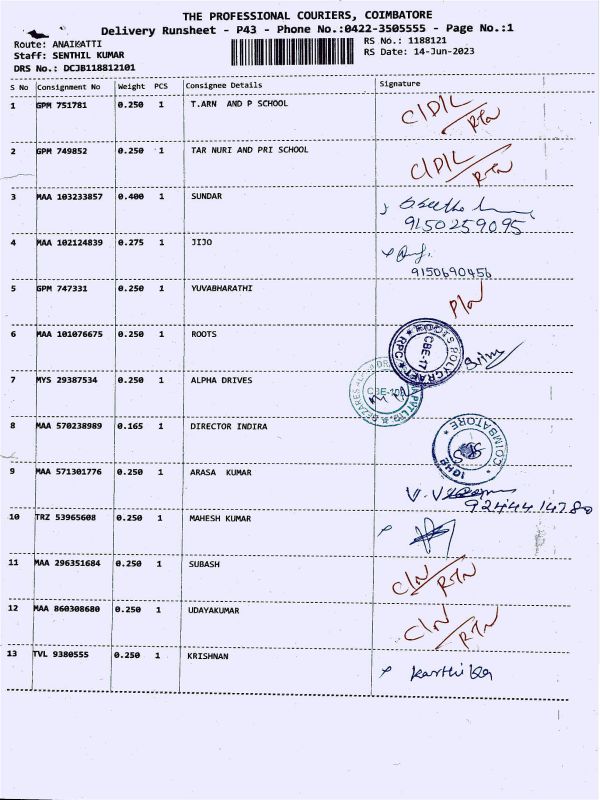 THE PROFESSIONAL COURIERS, COIMBATORE
Delivery Runsheet - P43 - Phone No.:0422-3505555 - Page No.:1
Route: ANAIKATTI
RS No.: 1188121
Staff: SENTHIL KUMAR
RS Date: 14-Jun-2023
DRS No.: DCJB118812101
S No Consignment No Weight PCS Consignee Details Signature
1 GPM 751781 0.250 1 T.ARN AND P SCHOOL C/D/L/RTN
2 GPM 749852 0.250 1 TAR NURI AND PRI SCHOOL C/D/L/RTN
3 MAA 103233857 0.400 1 SUNDAR
9150259095
4 MAA 102124839 0.275 1 JIJO
9150690456
5 GPM 747331 0.250 1 YUVABHARATHI
6 MAA 101076675 0.250 1 ROOTS
ROOTS POLYCRAFT RPC
CBE-17
7 MYS 29387534 0.250 1 ALPHA DRIVES
8 MAA 570238989 0.165 1 DIRECTOR INDIRA
COIMBATORE
9 MAA 571301776 0.250 1 ARASA KUMAR
9244414780
10 TRZ 53965608 0.250 1 MAHESH KUMAR
11 MAA 296351684 0.250 1 SUBASH C/N/RTN
12 MAA 860308680 0.250 1 UDAYAKUMAR C/N/RTN
13 TVL 9380555 0.250 1 KRISHNAN Karthika